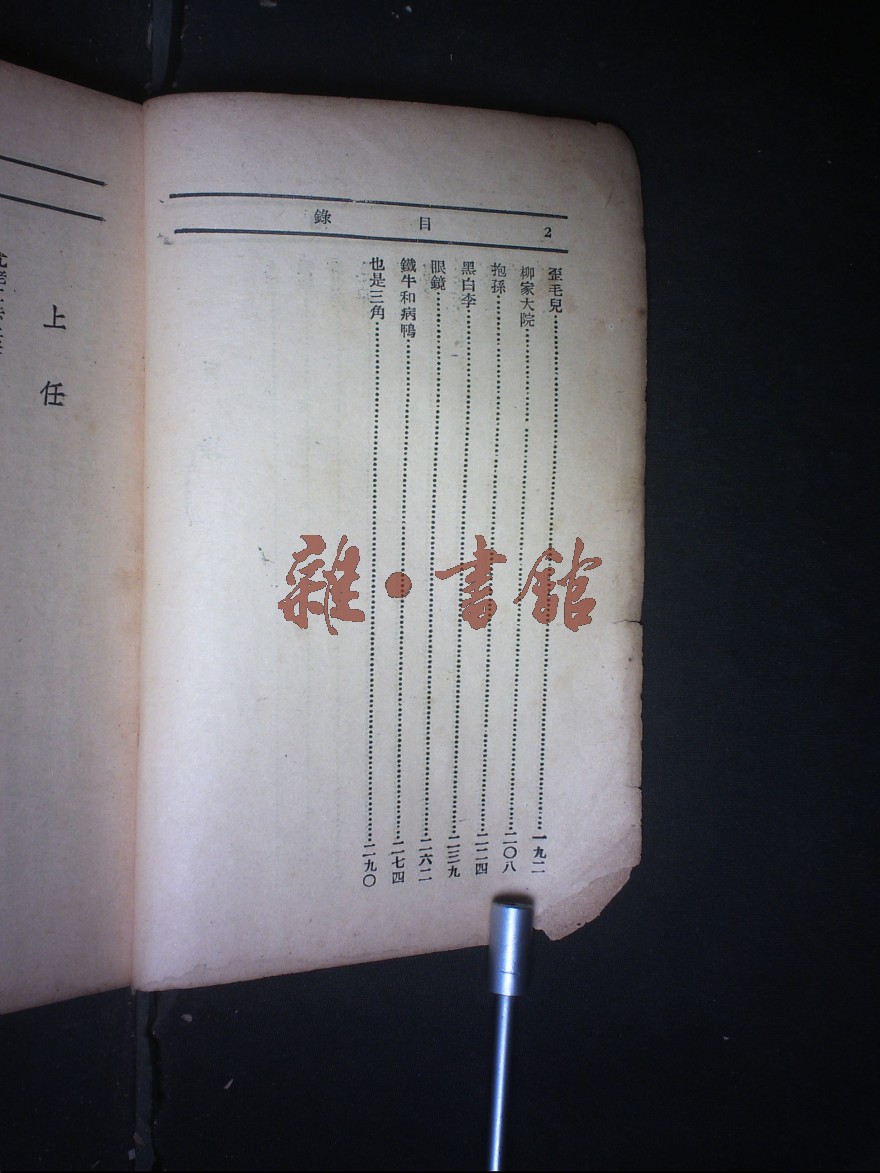 2 目錄
歪毛兒 一九二
柳家大院 二〇八
抱孫 二二四
黑白李 二三九
眼鏡 二六二
鐵牛和病鴨 二七四
也是三角 二九〇
上任
雜·書館